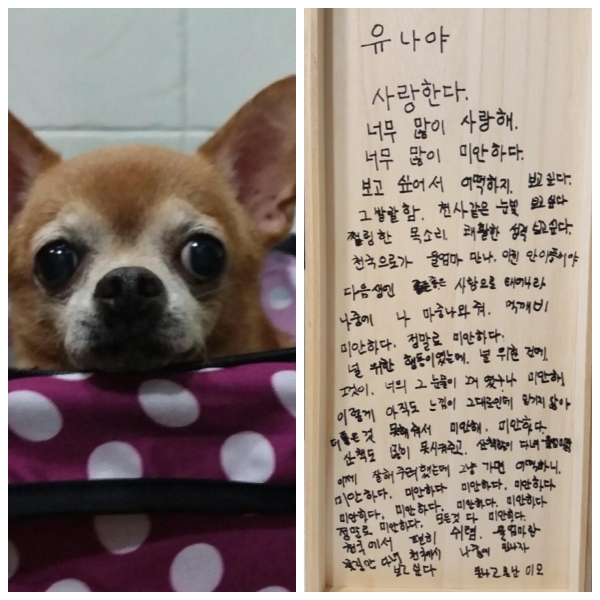 유나야
사랑한다.
너무 많이 사랑해.
너무 많이 미안하다.
보고 싶어서 어떡하지. 보고싶다.
그 발랄함. 천사같은 눈빛 보고싶다
쩔렁한 목소리. 쾌활한 성격 보고싶다.
천국으로가 울엄마 만나.
다음생엔 좋은 사람으로 태어나라
나중에 나 마중나와줘. 먹깨비
미안하다. 정말로 미안하다.
널 위한 행동이었는데. 널 위한 건데.
그것이. 너의 그 눈물이 미안해.
이렇게 아직도 느낌이 그대로인데 믿기지 않아
더 좋은것 못해줘서 미안해. 미안하다.
산책도 많이 못시켜주고. 산책많이 다녀
이제 잘해주려했는데 그냥 가면 어떡하니.
미안하다. 미안하다 미안하다. 미안하다
미안하다. 미안하다. 미안하다. 미안하다
정말로 미안하다. 모든것 다 미안하다.
천국에서 편히 쉬렴. 울엄마랑
꽃길만 천국에서 나중에 만나자
보고싶다 이모